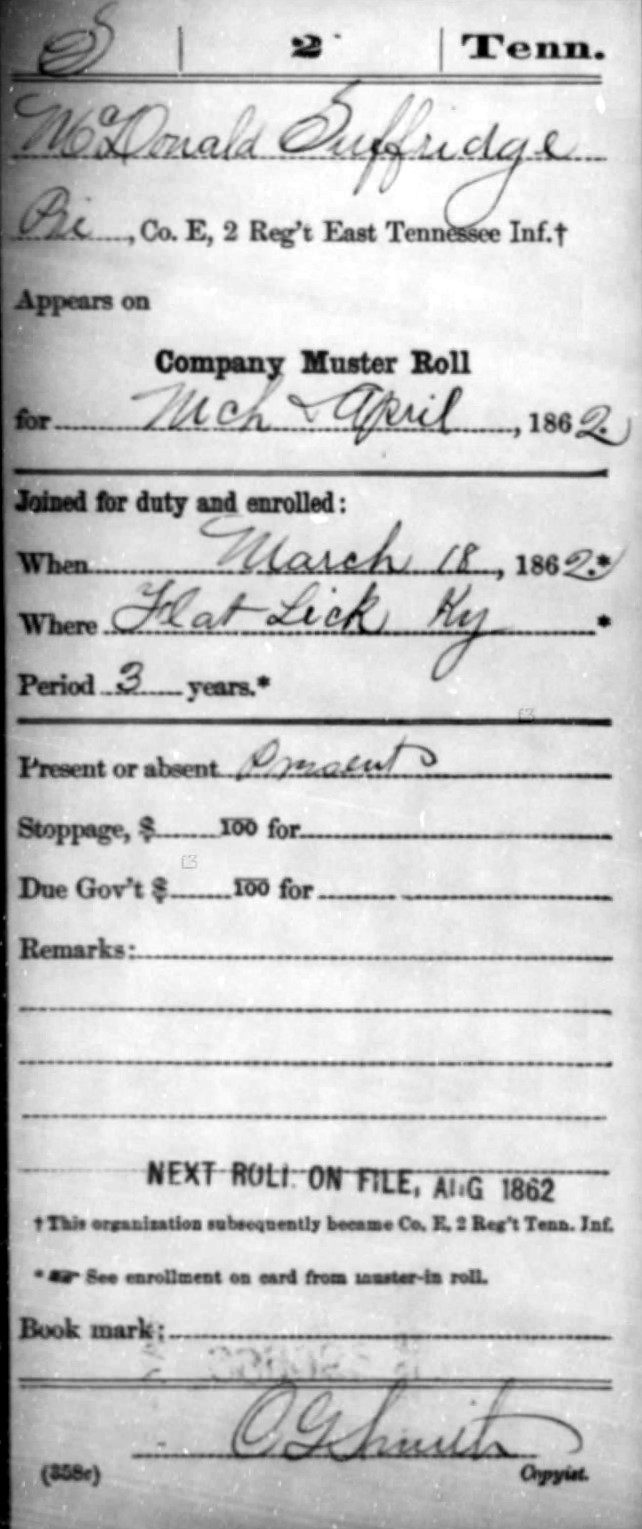 S | 2 | Tenn.
McDonald Suffridge
Pri, Co. E, 2 Reg't East Tennessee Inf.†
Appears on
Company Muster Roll
for Mch & April, 1862.
Joined for duty and enrolled:
When March 18, 1862.*
Where Flat Lick Ky *
Period 3 years.*
Present or absent Present
Stoppage, $ 100 for
Due Gov't $ 100 for
Remarks:
NEXT ROLL ON FILE, AUG 1862
† This organization subsequently became Co. E, 2 Reg't Tenn. Inf.
* ☞ See enrollment on card from muster-in roll.
Book mark:
C G Smith
(358c) Copyist.